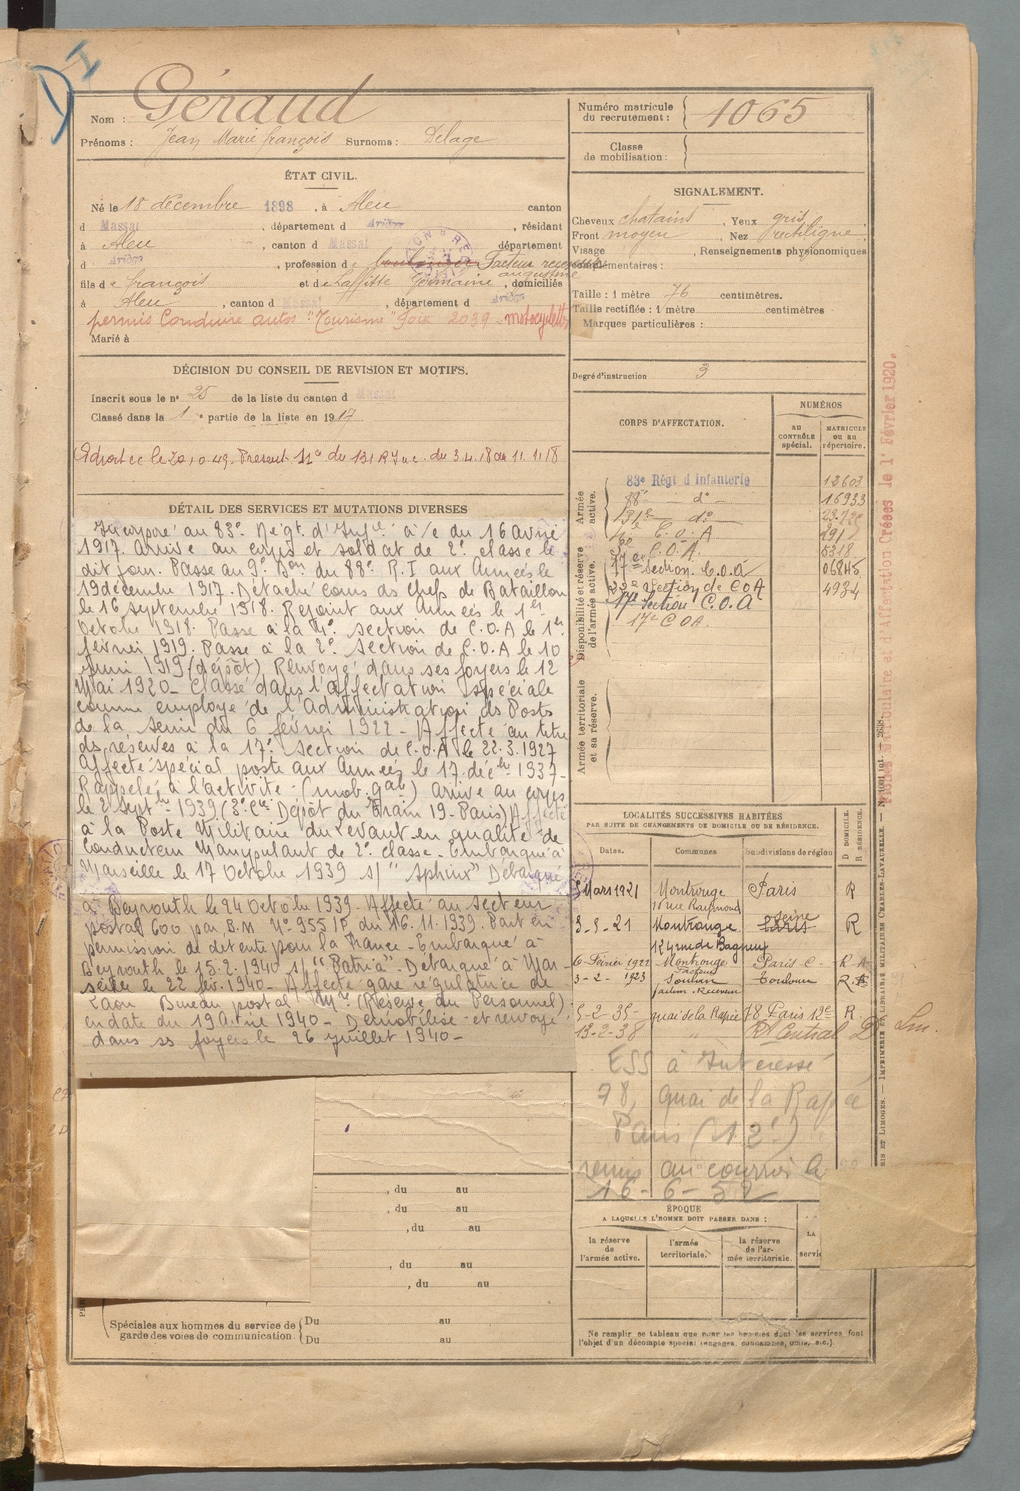 Nom : Géraud
Prénoms : Jean Marie François Surnoms : Delage
Numéro matricule du recrutement : 1065
Classe de mobilisation :
ÉTAT CIVIL.
Né le 18 décembre 1898, à Aleu canton
d Massat, département d Ariège, résidant
à Aleu, canton d Massat département
d Ariège, profession de Facteur
fils de François et de Laffitte Germaine augustine, domiciliés
à Aleu, canton d Massat, département d Ariège
permis Conduire autos "Tourisme" 2039 motocyclette
Marié à
SIGNALEMENT.
Cheveux chatains, Yeux gris
Front moyen, Nez rectiligne
Visage , Renseignements physionomiques
complémentaires :
Taille : 1 mètre 76 centimètres.
Taille rectifiée : 1 mètre centimètres
Marques particulières :
Degré d'instruction 3
DÉCISION DU CONSEIL DE REVISION ET MOTIFS.
Inscrit sous le n° 25 de la liste du canton d Massat
Classé dans la 1e partie de la liste en 1917
Présent du 131 R. Inf. du 3.4.18 au 11.11.18
CORPS D'AFFECTATION.
NUMÉROS
AU CONTRÔLE spécial.
MATRICULE OU AU répertoire.
Armée active.
Disponibilité et réserve de l'armée active.
Armée territoriale et sa réserve.
83e Régt d'infanterie 12603
88e do 16933
131e do
C.O.A
C.O.A. 5318
17e Section C.O.A
22e Section de COA 4934
17e Section C.O.A
17e COA.
DÉTAIL DES SERVICES ET MUTATIONS DIVERSES
Incorporé au 83e Régt d'Inf.ie à/c du 16 Avril
1917. Arrivé au corps et soldat de 2e classe le
dit jour. Passé au 9e Bon du 88e R.I aux Armées le
19 décembre 1917. Détaché cours ds chefs de Bataillon
le 16 septembre 1918. Rejoint aux Armées le 1er
Octobre 1918. Passé à la 4e section de C.O.A le 1er
février 1919. Passé à la 2e section de C.O.A le 10
Juin 1919 (dépôt) Renvoyé dans ses foyers le 12
Mai 1920 - Classé dans l'affectation spéciale
comme employé de l'Administration ds Postes
de la Seine du 6 février 1922 - Affecté au titre
ds réserves à la 17e section de C.O.A le 22.3.1927
Affecté spécial poste aux Armées le 17 décbre 1937 -
Rappelé à l'activité (mob. gale) arrivé au corps
le 2 Septre 1939 (3e Cie Dépôt du Train 19 - Paris) Affecté
à la Poste Militaire du Levant en qualité de
Conducteur Manipulant de 2e classe - Embarqué à
Marseille le 17 Octobre 1939 s/ "Sphinx" Débarqué
à Beyrouth le 24 Octobre 1939. Affecté au Secteur
postal 600 par B.M No 955 1P du 16.11.1939. Parti en
permission de détente pour la France - Embarqué à
Beyrouth le 15.2.1940 s/ "Patria". Débarqué à Mar-
seille le 22 fév. 1940 - Affecté gare régulatrice de
Laon Bureau postal Mre (Réserve du Personnel)
en date du 19 Avril 1940 - Démobilisé et renvoyé
dans ss foyers le 26 juillet 1940 -
LOCALITÉS SUCCESSIVES HABITÉES
PAR SUITE DE CHANGEMENTS DE DOMICILE OU DE RÉSIDENCE.
Dates. Communes Subdivisions de région D DOMICILE. R RÉSIDENCE.
5 Mars 1921 Montrouge Paris R
rue Raymond
3-5-21 Montrouge Seine R
124 rue de Bagneux
6 Février 1922 Montrouge Paris C. R.A
3-2-1923 Toulouse R.A
facteur Receveur
5-2-35 quai de la Rapée 78 Paris 12e R.
13-2-38 " Rt Central D
ESS à Intéressé
78, quai de la Rapée
Paris (12e)
remis au courrier le
16-6-52
ÉPOQUE
A LAQUELLE L'HOMME DOIT PASSER DANS :
la réserve de l'armée active.
l'armée territoriale.
la réserve de l'armée territoriale.
LA
Ne remplir ce tableau que pour les hommes dont les services font
l'objet d'un décompte spécial (engagés, condamnés, omis, etc.)
, du au
, du au
, du au
, du au
, du au
Spéciales aux hommes du service de garde des voies de communication.
Du au
Du au
IMPRIMERIE ET LIBRAIRIE MILITAIRES CHARLES-LAVAUZELLE.
et d'Affectation Créées le 1er Février 1920.